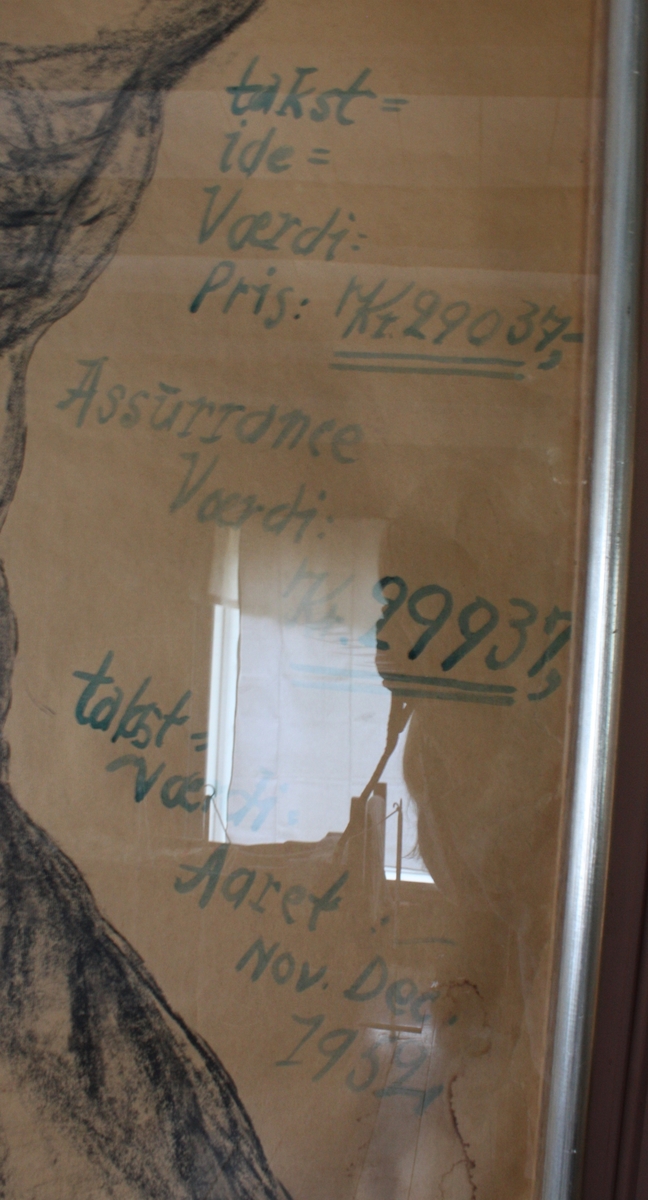 takst =
ide =
Værdi:
Pris: Kr. 29037,-
Assurrance
Værdi:
Kr. 29937,
takst =
Værdi:
Aaret :
Nov. Dec.
1952,